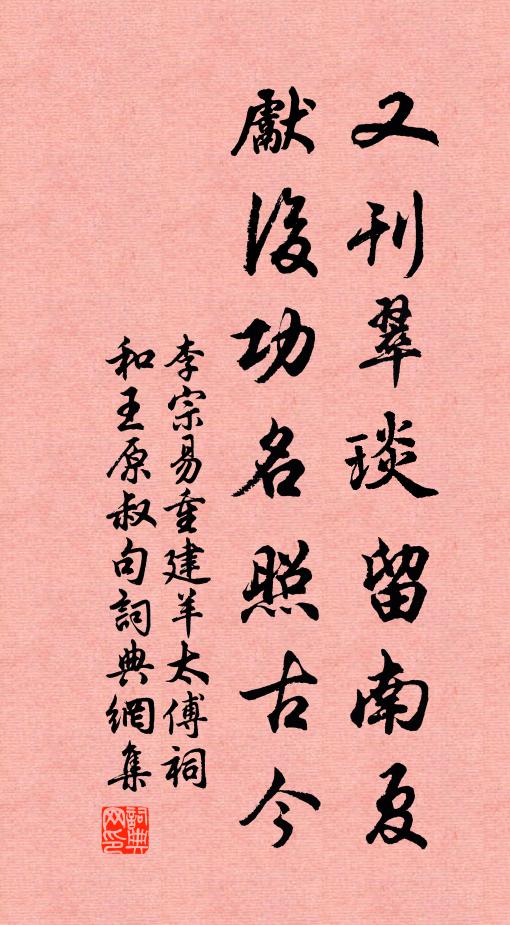 又刊翠琰留南夏
獻後功名照古今
李宗易重建羊太傅祠
和王原叔句詞典網集
詞典
网印